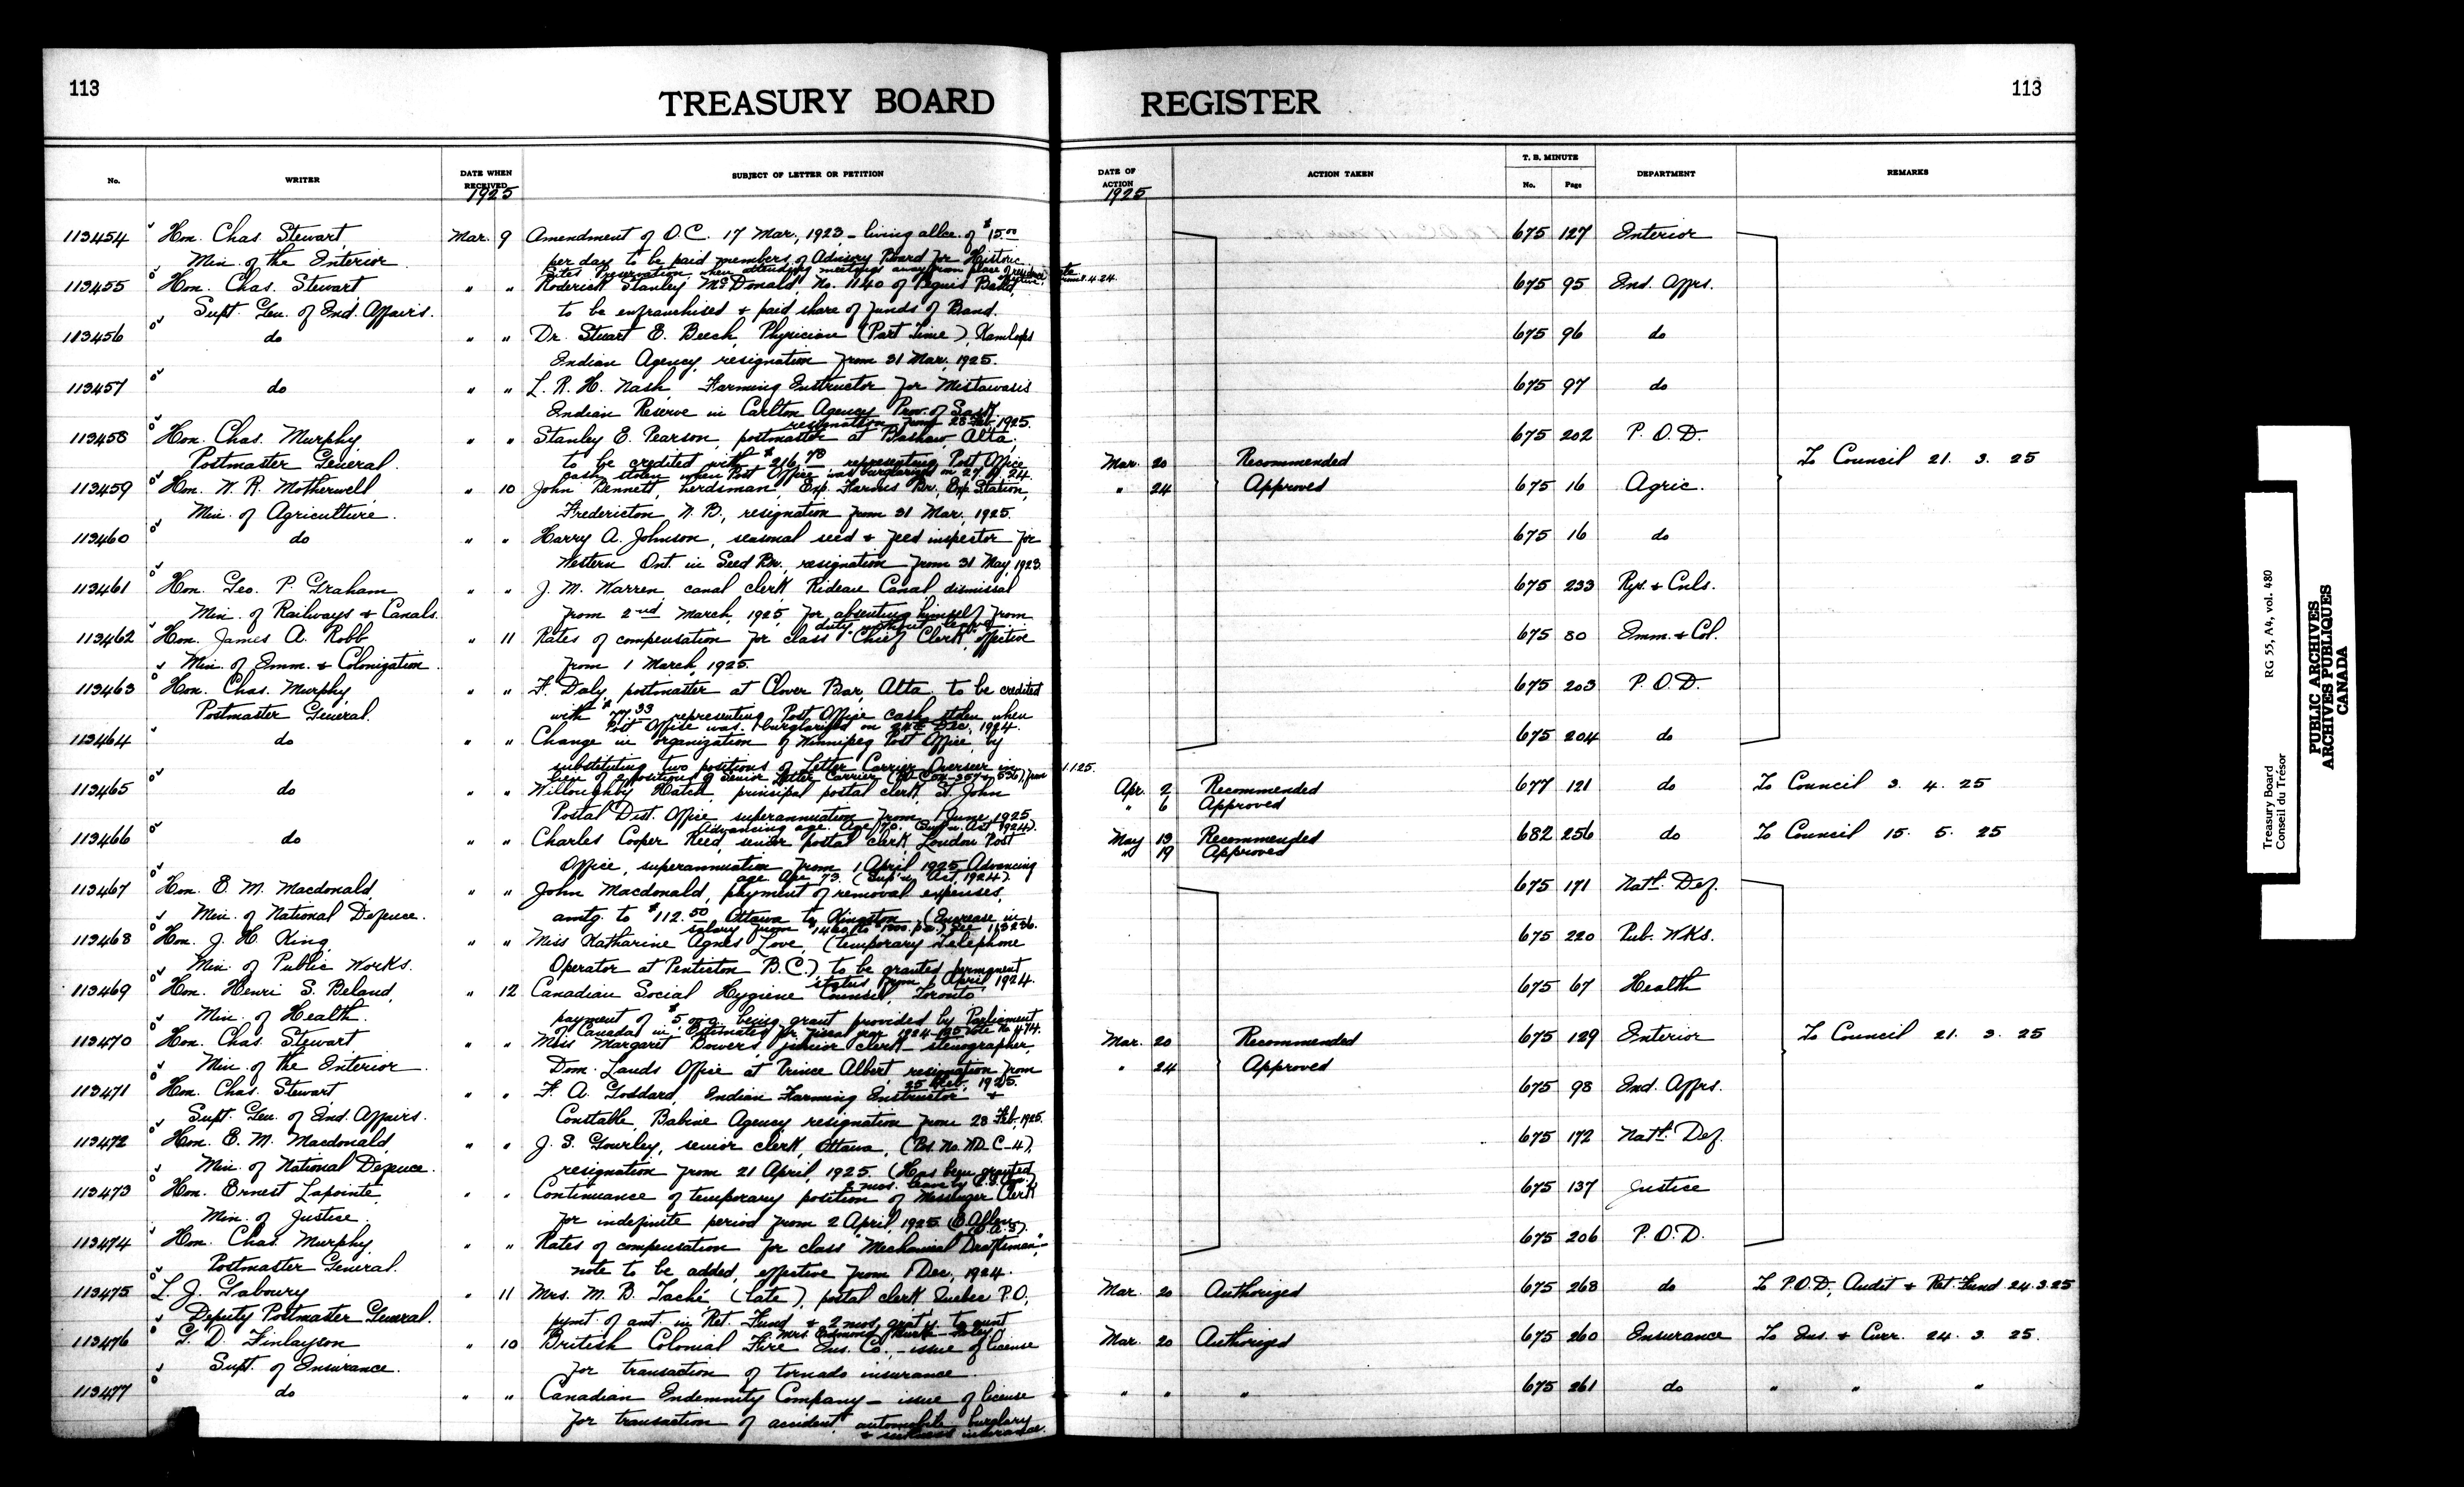 113
TREASURY BOARD
REGISTER
113
No.
WRITER
DATE WHEN RECEIVED
SUBJECT OF LETTER OR PETITION
DATE OF ACTION
ACTION TAKEN
T. B. MINUTE
No.
Page
DEPARTMENT
REMARKS
1925
1925
113454 Hon. Chas. Stewart, Mar. 9 Amendment of O.C. 17 Mar., 1923 - living allce. of $15.00 675 127 Interior
Min. of the Interior. per day to be paid members of Advisory Board for Historic
Sites Preservation, when attending meetings away from place of residence
113455 Hon. Chas. Stewart " " Roderick Stanley McDonald No. 1140 of Peguis Band, 675 95 Ind. Affrs.
Supt. Gen. of Ind. Affairs. to be enfranchised & paid share of funds of Band.
113456 do " " Dr. Stuart E. Beech, Physician (Part Time), Kamloops 675 96 do
Indian Agency, resignation from 31 Mar., 1925.
113457 do " " L. R. H. Nash, Farming Instructor for Mistawasis 675 97 do
Indian Reserve in Carlton Agency Prov. of Sask.
resignation from 28 Feb. 1925.
113458 Hon. Chas. Murphy, " " Stanley E. Pearson, postmaster at Bashaw Alta, 675 202 P. O. D.
Postmaster General. to be credited with $216.73 representing Post Office Mar. 20 Recommended To Council 21. 3. 25
cash stolen when Post Office was burglarized on 27
113459 Hon. W. R. Motherwell, " 10 John Bennett, herdsman, Exp. Farms Br., Exp. Station, " 24 Approved 675 16 Agric.
Min. of Agriculture. Fredericton N. B., resignation from 31 Mar., 1925.
113460 do " " Harry A. Johnson, seasonal seed & feed inspector for 675 16 do
Western Ont. in Seed Br., resignation from 31 May, 1923.
113461 Hon. Geo. P. Graham, " " J. M. Warren, canal clerk, Rideau Canal, dismissal 675 233 Rys. & Cnls.
Min. of Railways & Canals. from 2nd March, 1925, for absenting himself from
duty without leave.
113462 Hon. James A. Robb " 11 Rates of compensation for class "Chief Clerk", effective 675 80 Imm. & Col.
Min. of Imm. & Colonization. from 1 March, 1925.
113463 Hon. Chas. Murphy, " " F. Daly, postmaster at Clover Bar, Alta. to be credited 675 203 P. O. D.
Postmaster General. with $77.33 representing Post Office cash stolen when
Post Office was burglarized on 24th Dec., 1924.
113464 do " " Change in organization of Winnipeg Post Office, by 675 204 do
substituting two positions of Letter Carrier Overseer in
lieu of 2 positions of Senior Letter Carrier from 1.1.25.
113465 do " " Willoughby Hatch, principal postal clerk, St. John Apr. 2 Recommended 677 121 do To Council 3. 4. 25
Postal Dist. Office, superannuation from 1 June, 1925. " 6 Approved
Advancing age. Age 70. (Sup'n. Act 1924).
113466 do " " Charles Cooper Reed, senior postal clerk, London Post May 13 Recommended 682 256 do To Council 15. 5. 25
Office, superannuation from 1 April 1925 Advancing " 19 Approved
age. Age 73. (Sup'n. Act, 1924).
113467 Hon. E. M. Macdonald, " " John Macdonald, payment of removal expenses, 675 171 Natl. Def.
Min. of National Defence. amtg. to $112.50 Ottawa to Kingston, (Increase in
salary from See 113236.
113468 Hon. J. H. King, " " Miss Katharine Agnes Love, (temporary Telephone 675 220 Pub. Wks.
Min. of Public Works. Operator at Penticton B.C.), to be granted permanent
status from 1 April, 1924.
113469 Hon. Henri S. Beland, " 12 Canadian Social Hygiene Council, Toronto, 675 67 Health
Min. of Health. payment of $5,000. being grant provided by Parliament
of Canada in Estimates for fiscal year 1924-1925 Vote No. 474.
113470 Hon. Chas. Stewart " " Miss Margaret Bowers, junior clerk-stenographer, Mar. 20 Recommended 675 129 Interior To Council 21. 3. 25
Min. of the Interior. Dom. Lands Office at Prince Albert, resignation from " 24 Approved
25 Feb. 1925.
113471 Hon. Chas. Stewart, " " F. A. Goddard, Indian Farming Instructor & 675 98 Ind. Affrs.
Supt. Gen. of Ind. Affairs. Constable, Babine Agency, resignation from 28 Feb. 1925.
113472 Hon. E. M. Macdonald, " " J. S. Gourley, senior clerk, Ottawa, (Pos. No. ND. C-4), 675 172 Natl. Def.
Min. of National Defence. resignation from 21 April, 1925. (Has been granted
2 mos. leave by C.S. Com.)
113473 Hon. Ernest Lapointe, " " Continuance of temporary position of Messenger Clerk 675 137 Justice
Min. of Justice. for indefinite period from 2 April, 1925
113474 Hon. Chas. Murphy, " " Rates of compensation for class "Mechanical Draftsman", - 675 206 P. O. D.
Postmaster General. note to be added, effective from 1 Dec., 1924.
113475 L. J. Gaboury " 11 Mrs. M. B. Taché, (late), postal clerk, Quebec P.O., Mar. 20 Authorized 675 268 do To P.O.D., Audit & Ret. Fund 24.3.25
Deputy Postmaster General. pymt. of amt. in Ret. Fund & 2 mos. grat'y. to aunt
113476 G. D. Finlayson " 10 British Colonial Fire Ins. Co., - issue of license Mar. 20 Authorized 675 260 Insurance To Ins. & Curr. 24. 3. 25.
Supt. of Insurance. for transaction of tornado insurance.
113477 do " " Canadian Indemnity Company - issue of license " " " 675 261 do " " "
for transaction of accident, automobile, burglary
& sickness insurance.
Treasury Board RG 55, A4, vol. 480
Conseil du Trésor
PUBLIC ARCHIVES
ARCHIVES PUBLIQUES
CANADA